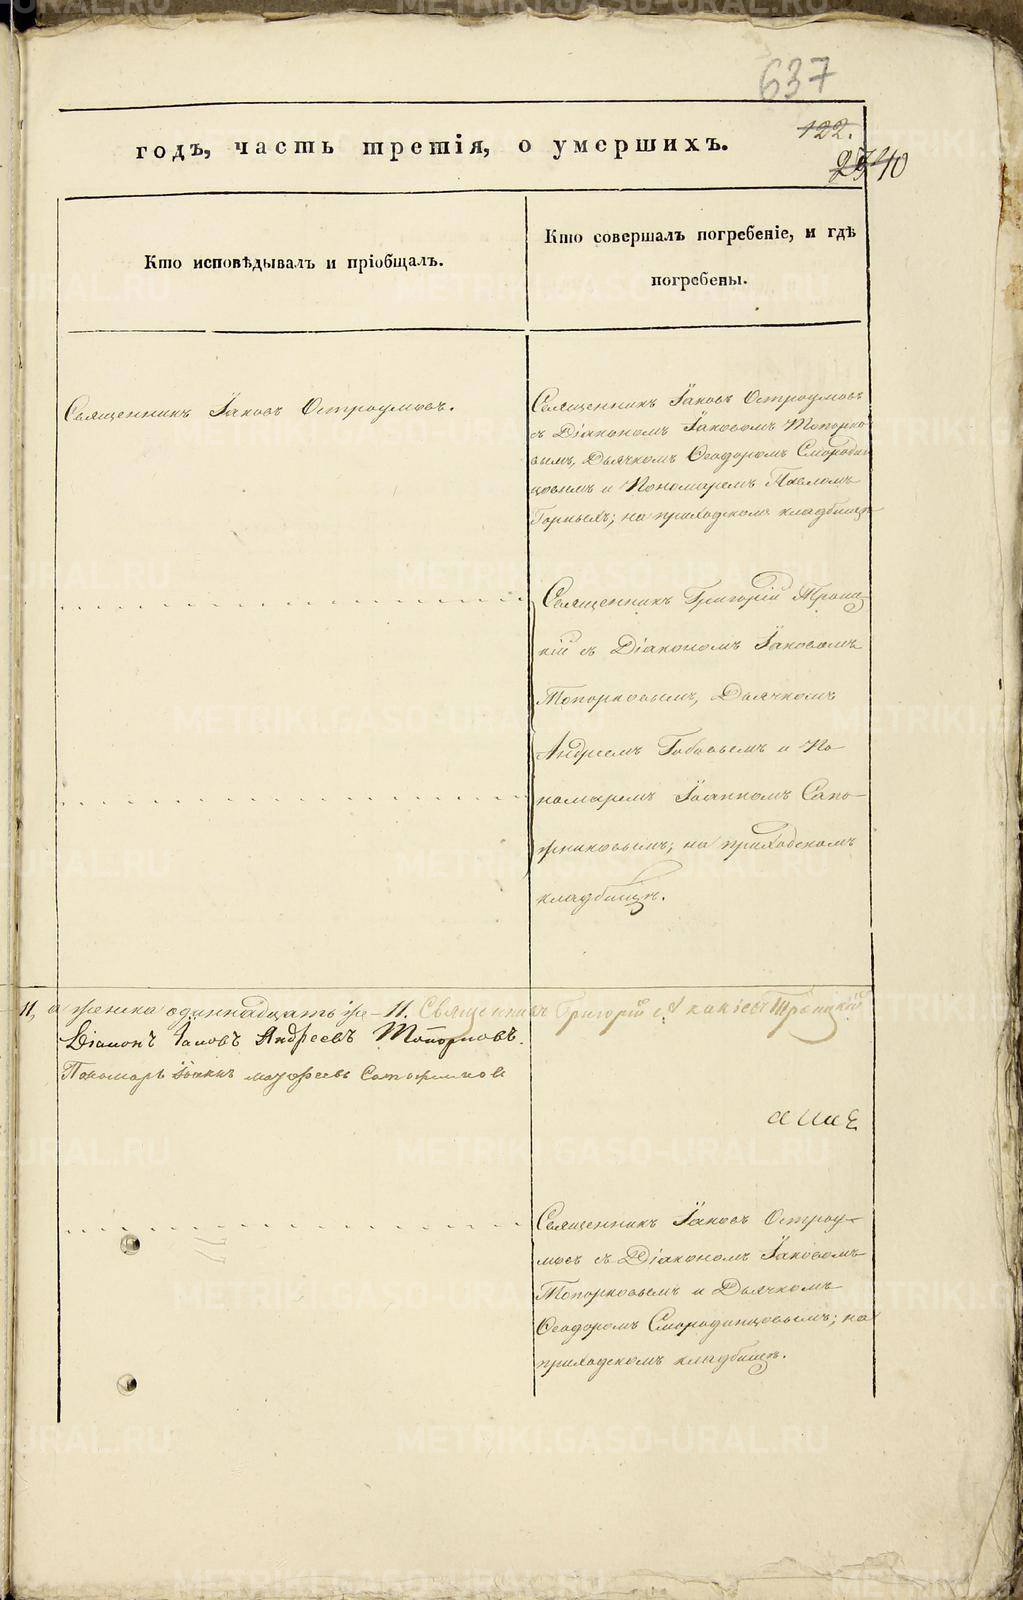 637
122.
10
годъ, часть третія, о умершихъ.
Кто исповѣдывалъ и пріобщалъ.
Кто совершалъ погребеніе, и гдѣ
погребены.
Священникъ Іаковъ Остроумовъ.
Священникъ Іаковъ Остроумовъ
съ Діакономъ Іаковомъ Топорко-
вымъ, Дьячкомъ Ѳеодоромъ Смородин
цовымъ и Пономаремъ Павломъ
Горныхъ; на приходскомъ кладбищѣ
Священникъ Григорій Троиц-
кій съ Діакономъ Іаковомъ
Топорковымъ, Дьячкомъ
Андреемъ Бабовымъ и По-
номаремъ Іоанномъ Сапо-
жниковымъ; на приходскомъ
кладбищѣ.
11, а женска одиннадцать же - 11. Священникъ Григорій Троицкій
Діаконъ Іаковъ Андреевъ Топорковъ.
Пономарь Іоаннъ Сапожников
Священникъ Іаковъ Остроу-
мовъ съ Діакономъ Іаковомъ
Топорковымъ и Дьячкомъ
Ѳеодоромъ Смородинцовымъ; на
приходскомъ кладбищѣ.
METRIKI.GASO-URAL.RU